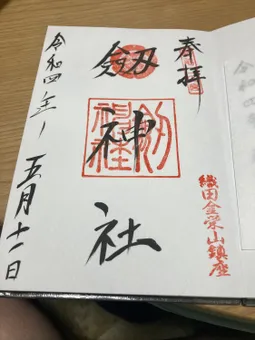 奉拝
織田金栄山鎮座
劔神社
令和四年五月十一日